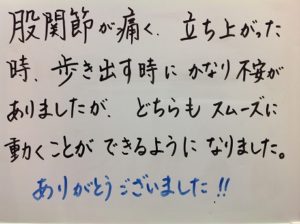 股関節が痛く、立ち上がった
時、歩き出す時に かなり不安が
ありましたが、どちらも スムーズに
動くことが できるように なりました。
ありがとうございました!!